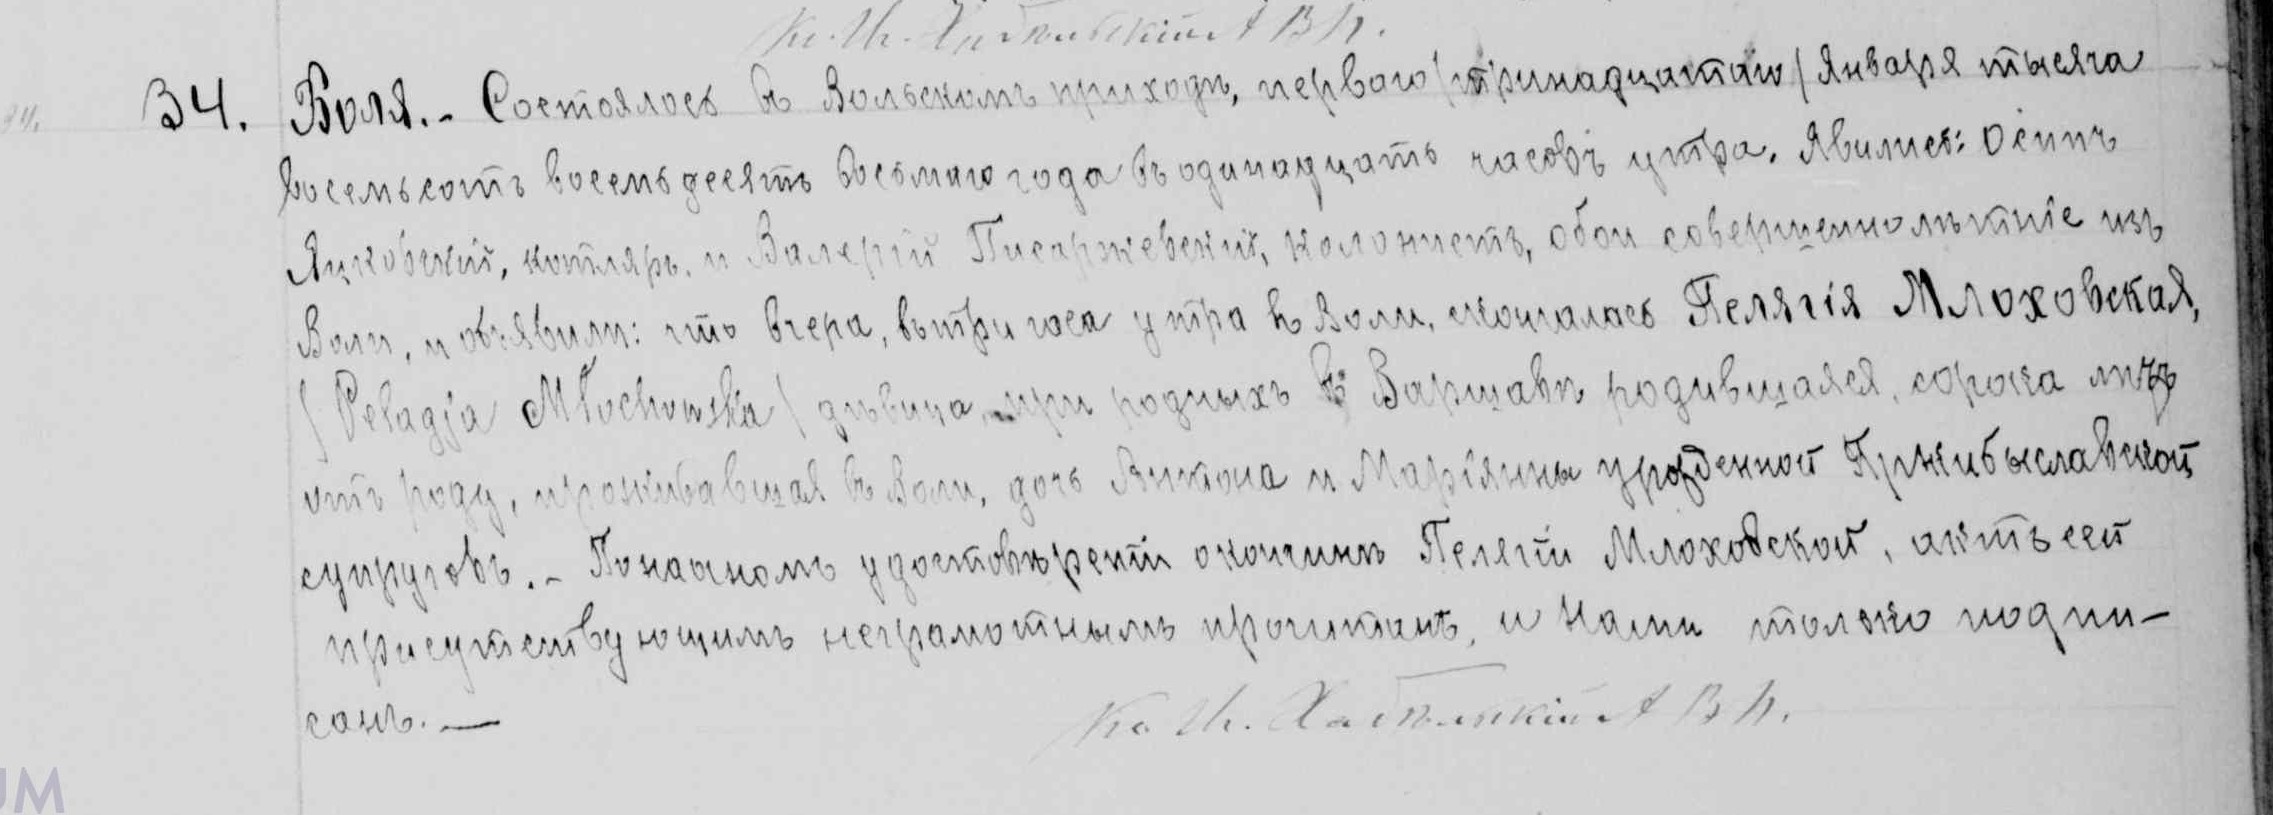 34. Воля. - Состоялось въ Вольскомъ приходѣ, перваго /тринадцатаго/ Января тысяча
восемьсотъ восемьдесятъ восьмаго года въ одинадцать часовъ утра. Явились: Осипъ
Яцковскій, котляръ, и Валерій Писаржевскій, колонистъ, обои совершеннолѣтніе изъ
Воли, и объявили: что вчера, въ три часа утра въ Воли, скончалась Пелягія Млоховская,
/Pelagja Młochowska/ дѣвица, при родныхъ въ Варшавѣ родившаяся, сорока лѣтъ
отъ роду, проживавшая въ Воли, дочь Антона и Маріянны урожденной Пржибыславской
супруговъ. - По наочномъ удостовѣреніи о кончинѣ Пелягіи Млоховской, актъ сей
присутствующимъ неграмотнымъ прочитанъ, и Нами только подпи-
санъ. —